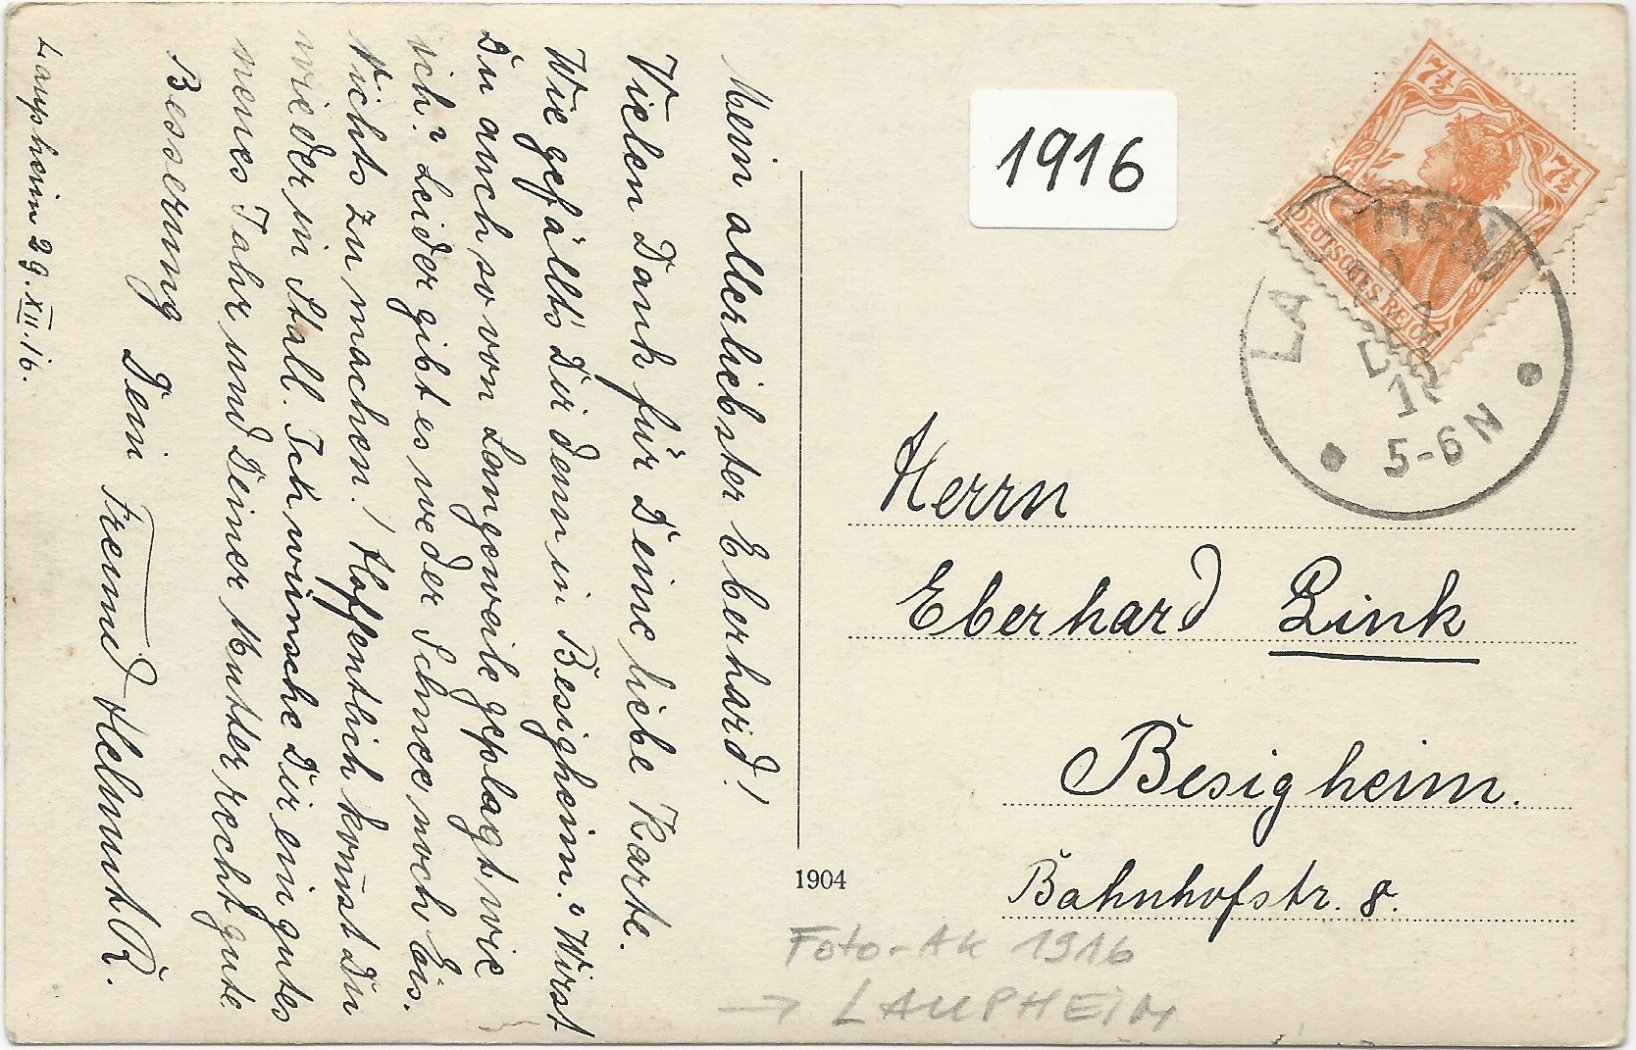 Laupheim 29.XII.16.
Mein allerliebster Eberhard!
Vielen Dank für Deine liebe Karte.
Wie gefällts Dir denn in Besigheim? Wirst
Du auch so von Langeweile geplagt wie
ich? Leider gibt es weder Schnee noch Eis.
Nichts zu machen! Hoffentlich kom̅st Du
wieder in Stall. Ich wünsche Dir ein gutes
neues Jahr und Deiner Mutter recht gute
Besserung
Dein
Freund Helmut R.
1916
7½
7½
DEUTSCHES REICH
LAUPHEIM
DEZ
5-6 N
Herrn
Eberhard Link
Besigheim.
Bahnhofstr. 8.
1904
Foto-AK 1916
→ LAUPHEIM